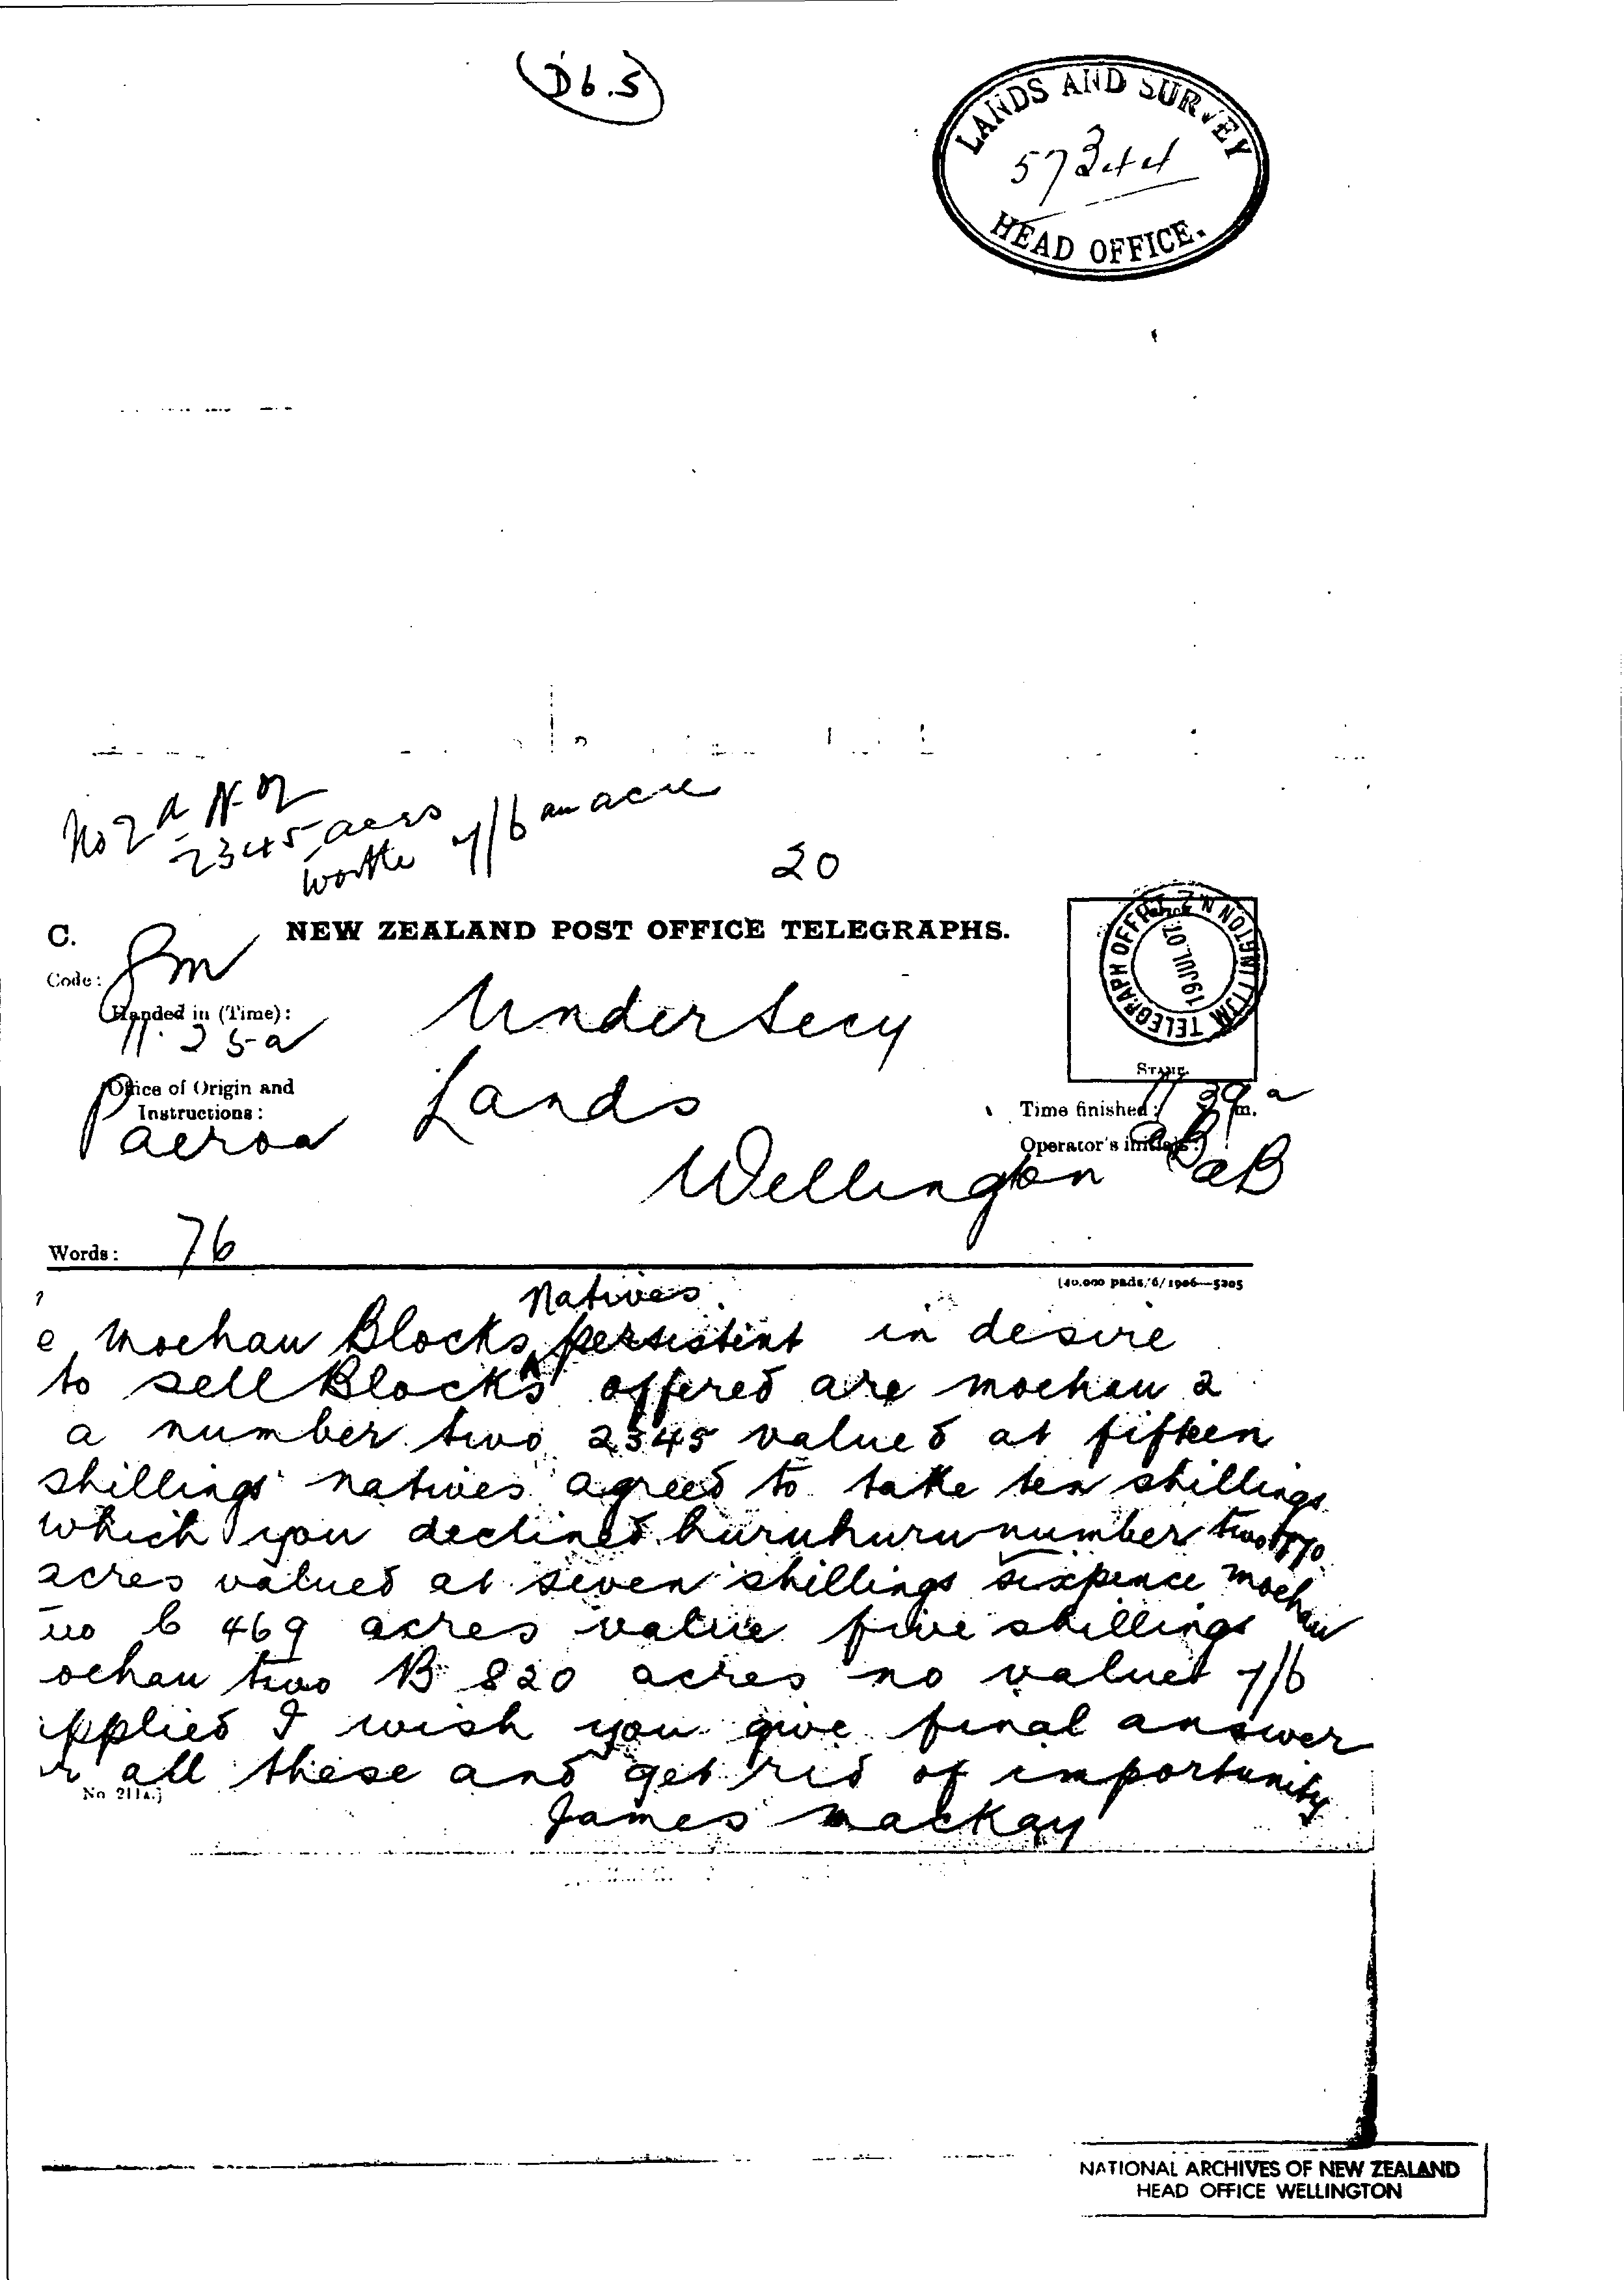 (D6.5)
LANDS AND SURVEY
57344
HEAD OFFICE.
No 2 a No 2
2345 acres
worth 7/6 an acre
20
C. NEW ZEALAND POST OFFICE TELEGRAPHS.
Code:
Handed in (Time):
11.25a
Under Secy
WELLINGTON N.Z.
TELEGRAPH OFFICE
19 JUL 07
STAMP.
Office of Origin and
Instructions:
Paeroa
Lands
Time finished: 11 39 a m.
Operator's initials:
aB
Wellington
Words: 76
[40,000 pads/6/1906—5205
Natives
e Moehau Blocks persistent in desire
to sell Blocks offered are moehau 2
a number two 2345 valued at fifteen
shillings natives agreed to take ten shillings
which you declined huruhuru number two
acres valued at seven shillings sixpence moehau
wo C 469 acres value five shillings
oehau two B 820 acres no value 7/6
applied I wish you give final answer
r all these and get rid of importunity
No. 211A.]
James Mackay
NATIONAL ARCHIVES OF NEW ZEALAND
HEAD OFFICE WELLINGTON